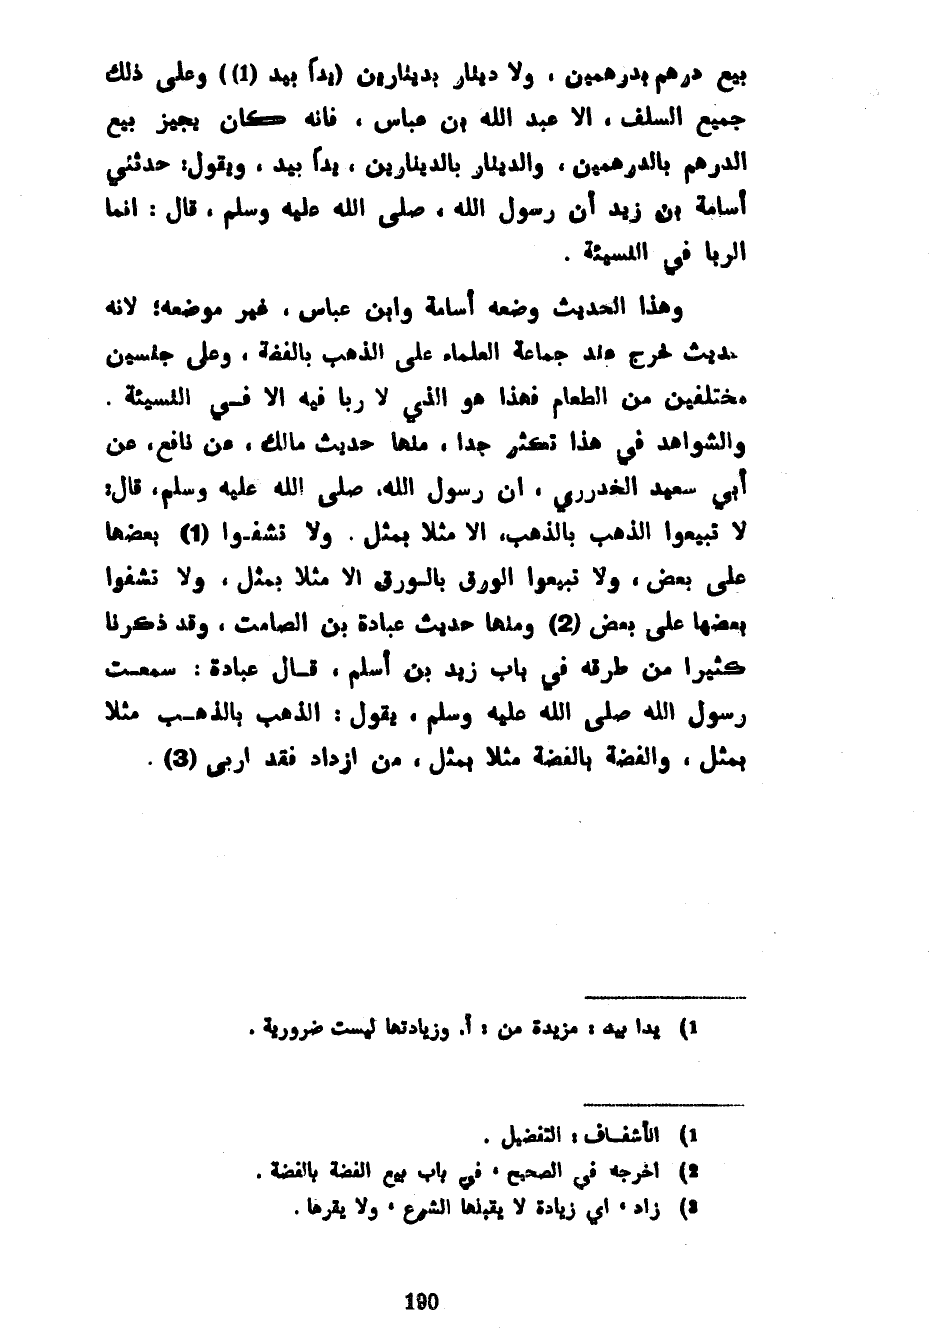 بيع درهم بدرهمين ، ولا دينار بدينارين (يداً بيد (1)) وعلى ذلك
جميع السلف ، الا عبد الله بن عباس ، فانه كان يجيز بيع
الدرهم بالدرهمين ، والدينار بالدينارين ، يداً بيد ، ويقول: حدثني
أسامة بن زيد أن رسول الله ، صلى الله عليه وسلم ، قال : انما
الربا في النسيئة .
وهذا الحديث وضعه أسامة وابن عباس ، غير موضعه؛ لانه
حديث خرج عند جماعة العلماء على الذهب بالفضة ، وعلى جنسين
مختلفين من الطعام فهذا هو الذي لا ربا فيه الا فــي النسيئة .
والشواهد في هذا تكثر جدا ، منها حديث مالك ، عن نافع، عن
أبي سعيد الخدرري ، ان رسول الله، صلى الله عليه وسلم، قال:
لا تبيعوا الذهب بالذهب، الا مثلا بمثل . ولا تشفـوا (1) بعضها
على بعض ، ولا تبيعوا الورق بالـورق الا مثلا بمثل ، ولا تشفوا
بعضها على بعض (2) ومنها حديث عبادة بن الصامت ، وقد ذكرنا
كثيرا من طرقه في باب زيد بن أسلم ، قــال عبادة : سمعــت
رسول الله صلى الله عليه وسلم ، يقول : الذهب بالذهــب مثلا
بمثل ، والفضة بالفضة مثلا بمثل ، من ازداد فقد اربى (3) .
1) يدا بيد : مزيدة من : أ. وزيادتها ليست ضرورية .
1) الأشفــاف : التفضيل .
2) اخرجه في الصحيح ، في باب بيع الفضة بالفضة .
3) زاد ، اي زيادة لا يقبلها الشرع ، ولا يقرها .
190